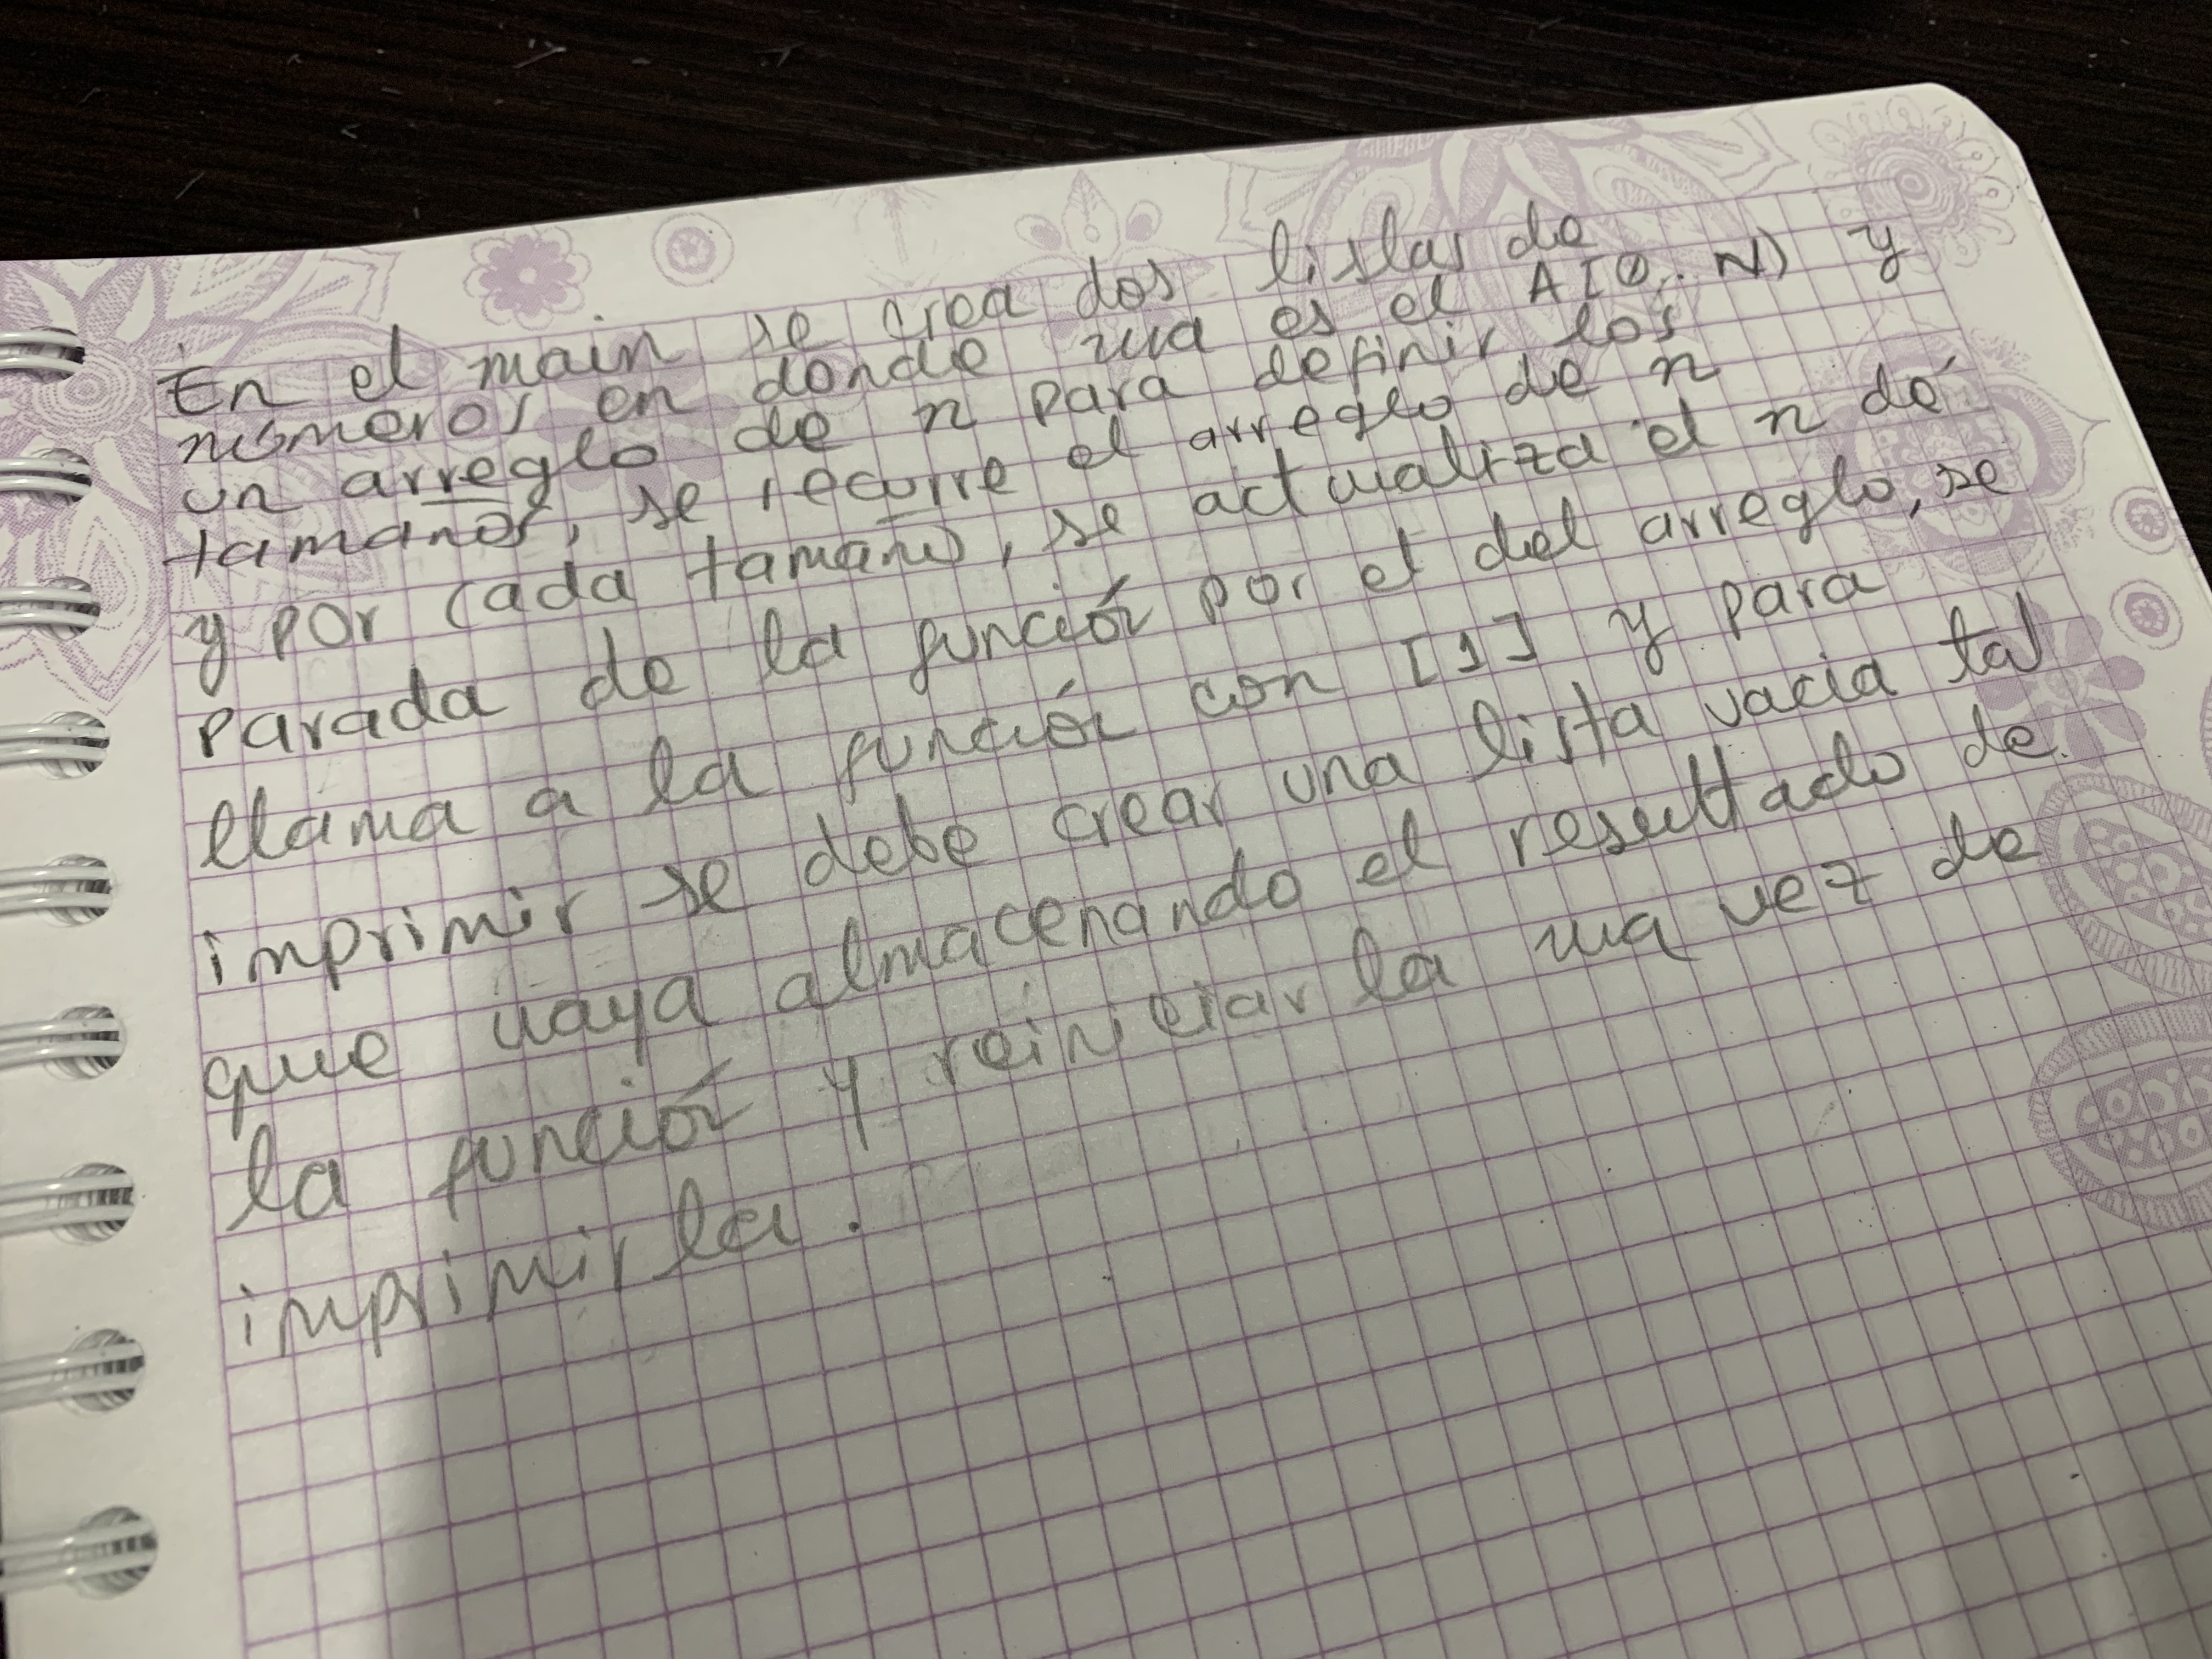 En el main se crea dos listas de
números en donde una es el A[0..N) y
un arreglo de n para definir los
tamaños, se recurre el arreglo de n
y por cada tamaño, se actualiza el n de
parada de la función por el del arreglo, se
llama a la función con [1] y para
imprimir se debe crear una lista vacia tal
que vaya almacenando el resultado de
la función y reiniciar la una vez de
imprimirla.